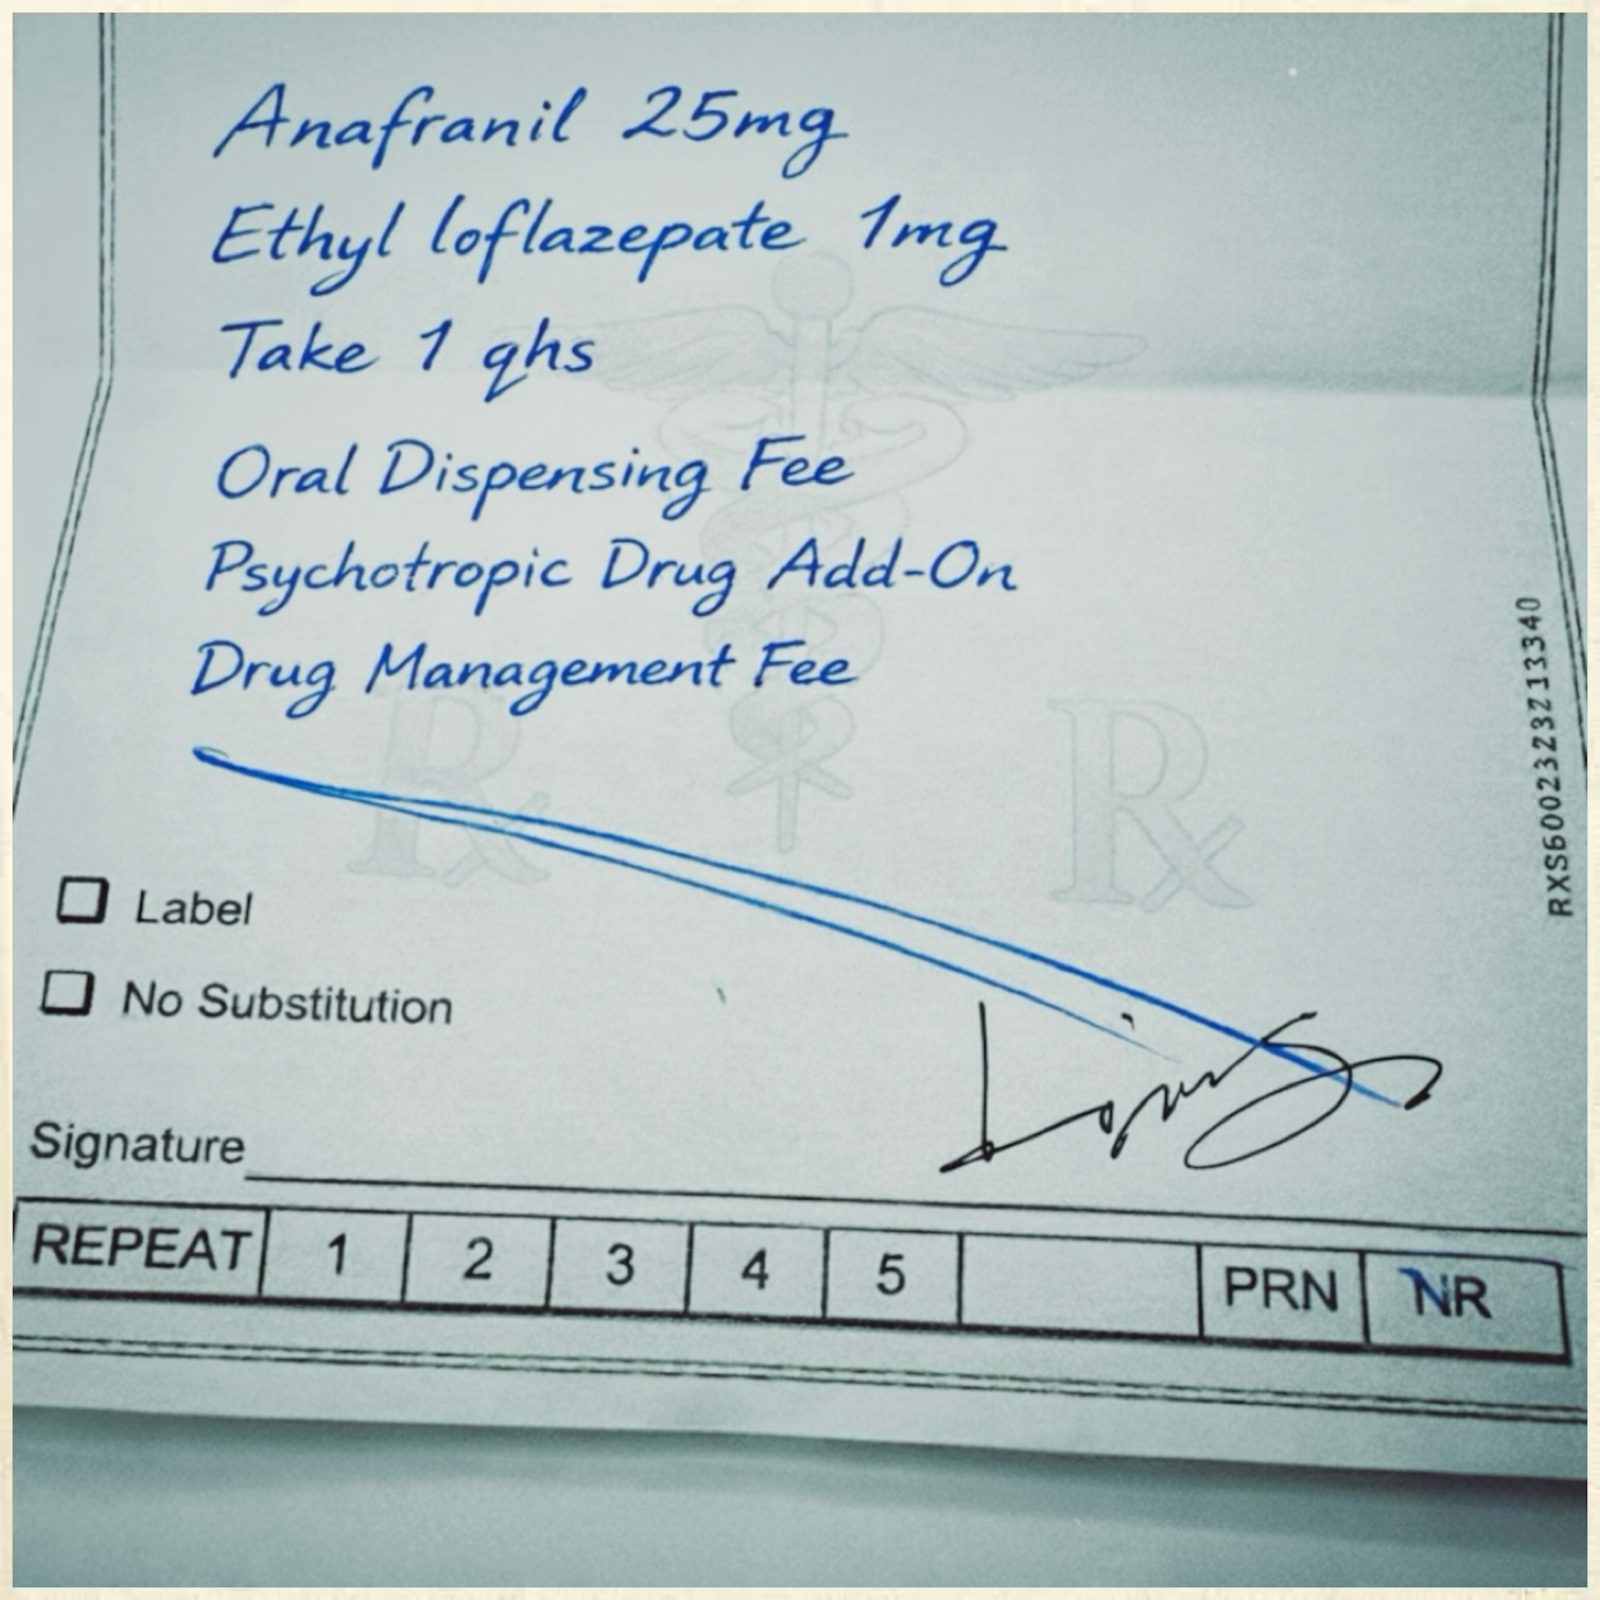 Anafranil 25mg
Ethyl loflazepate 1mg
Take 1 qhs
Oral Dispensing Fee
Psychotropic Drug Add-On
Drug Management Fee
Rx Rx
Label
No Substitution
Signature
REPEAT 1 2 3 4 5 PRN NR